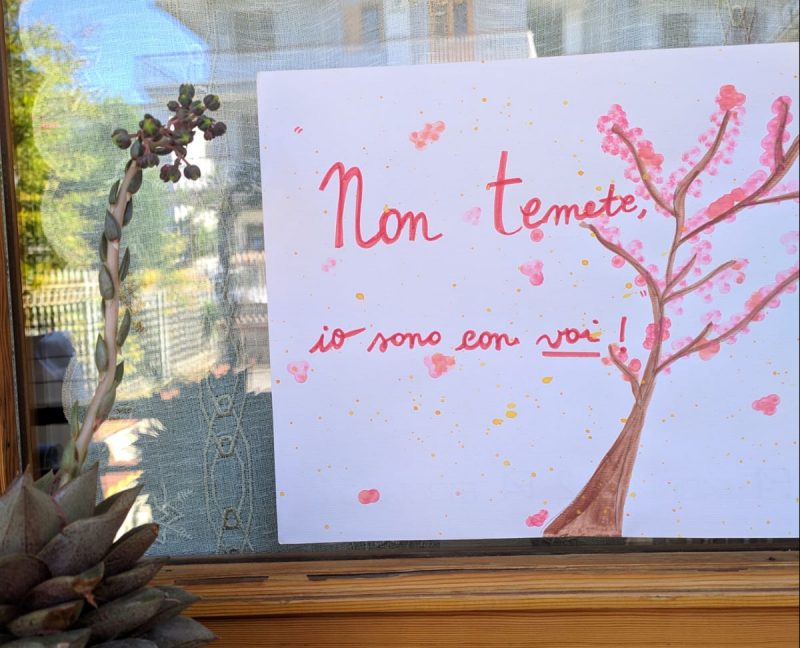 " Non temete,
io sono con voi ! "